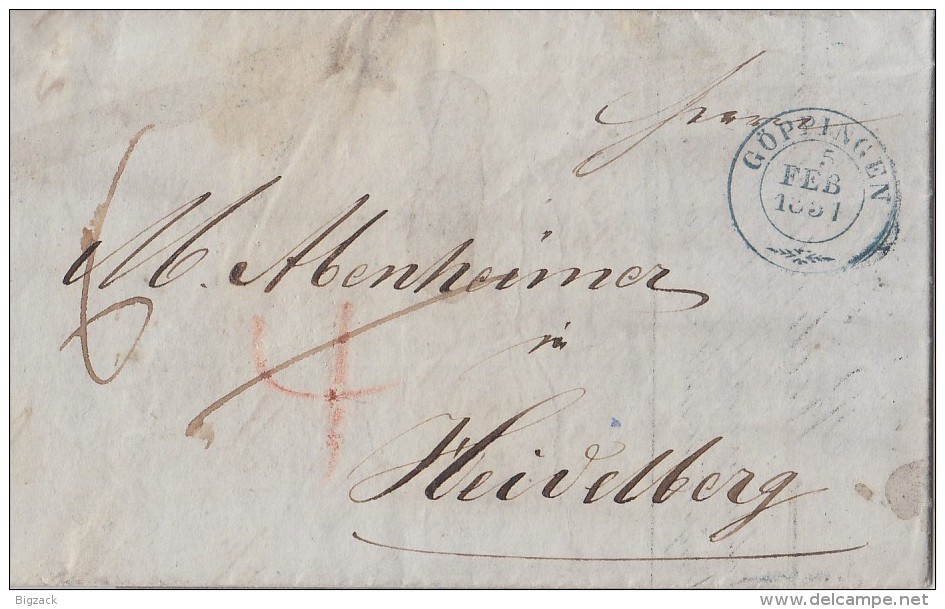 Herrn
GÖPPINGEN
5
FEB
1851
M. Abenheimer
in
Heidelberg
6
4
Bigzack
www.delcampe.net